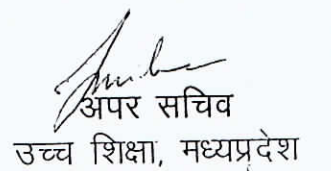 अपर सचिव
उच्च शिक्षा, मध्यप्रदेश